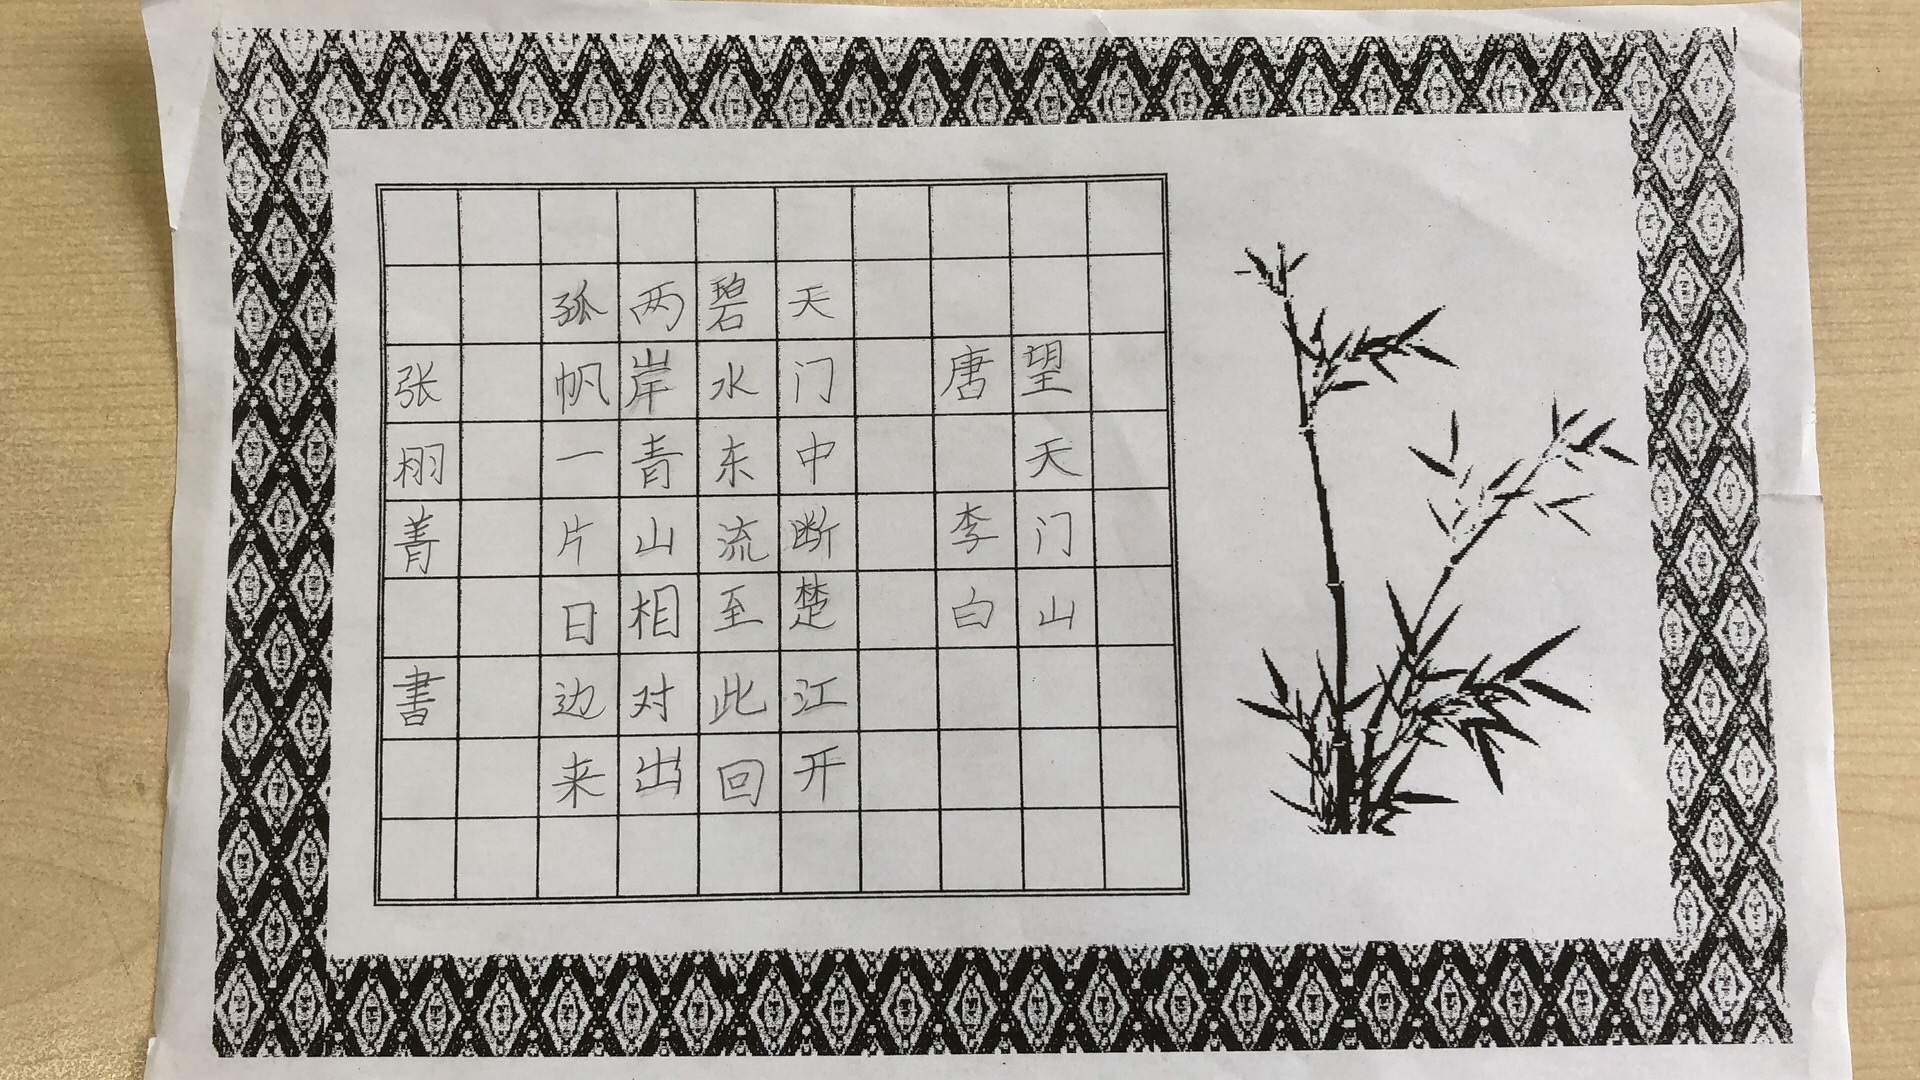 望天门山
唐 李白
天门中断楚江开
碧水东流至此回
两岸青山相对出
孤帆一片日边来
张栩菁 書